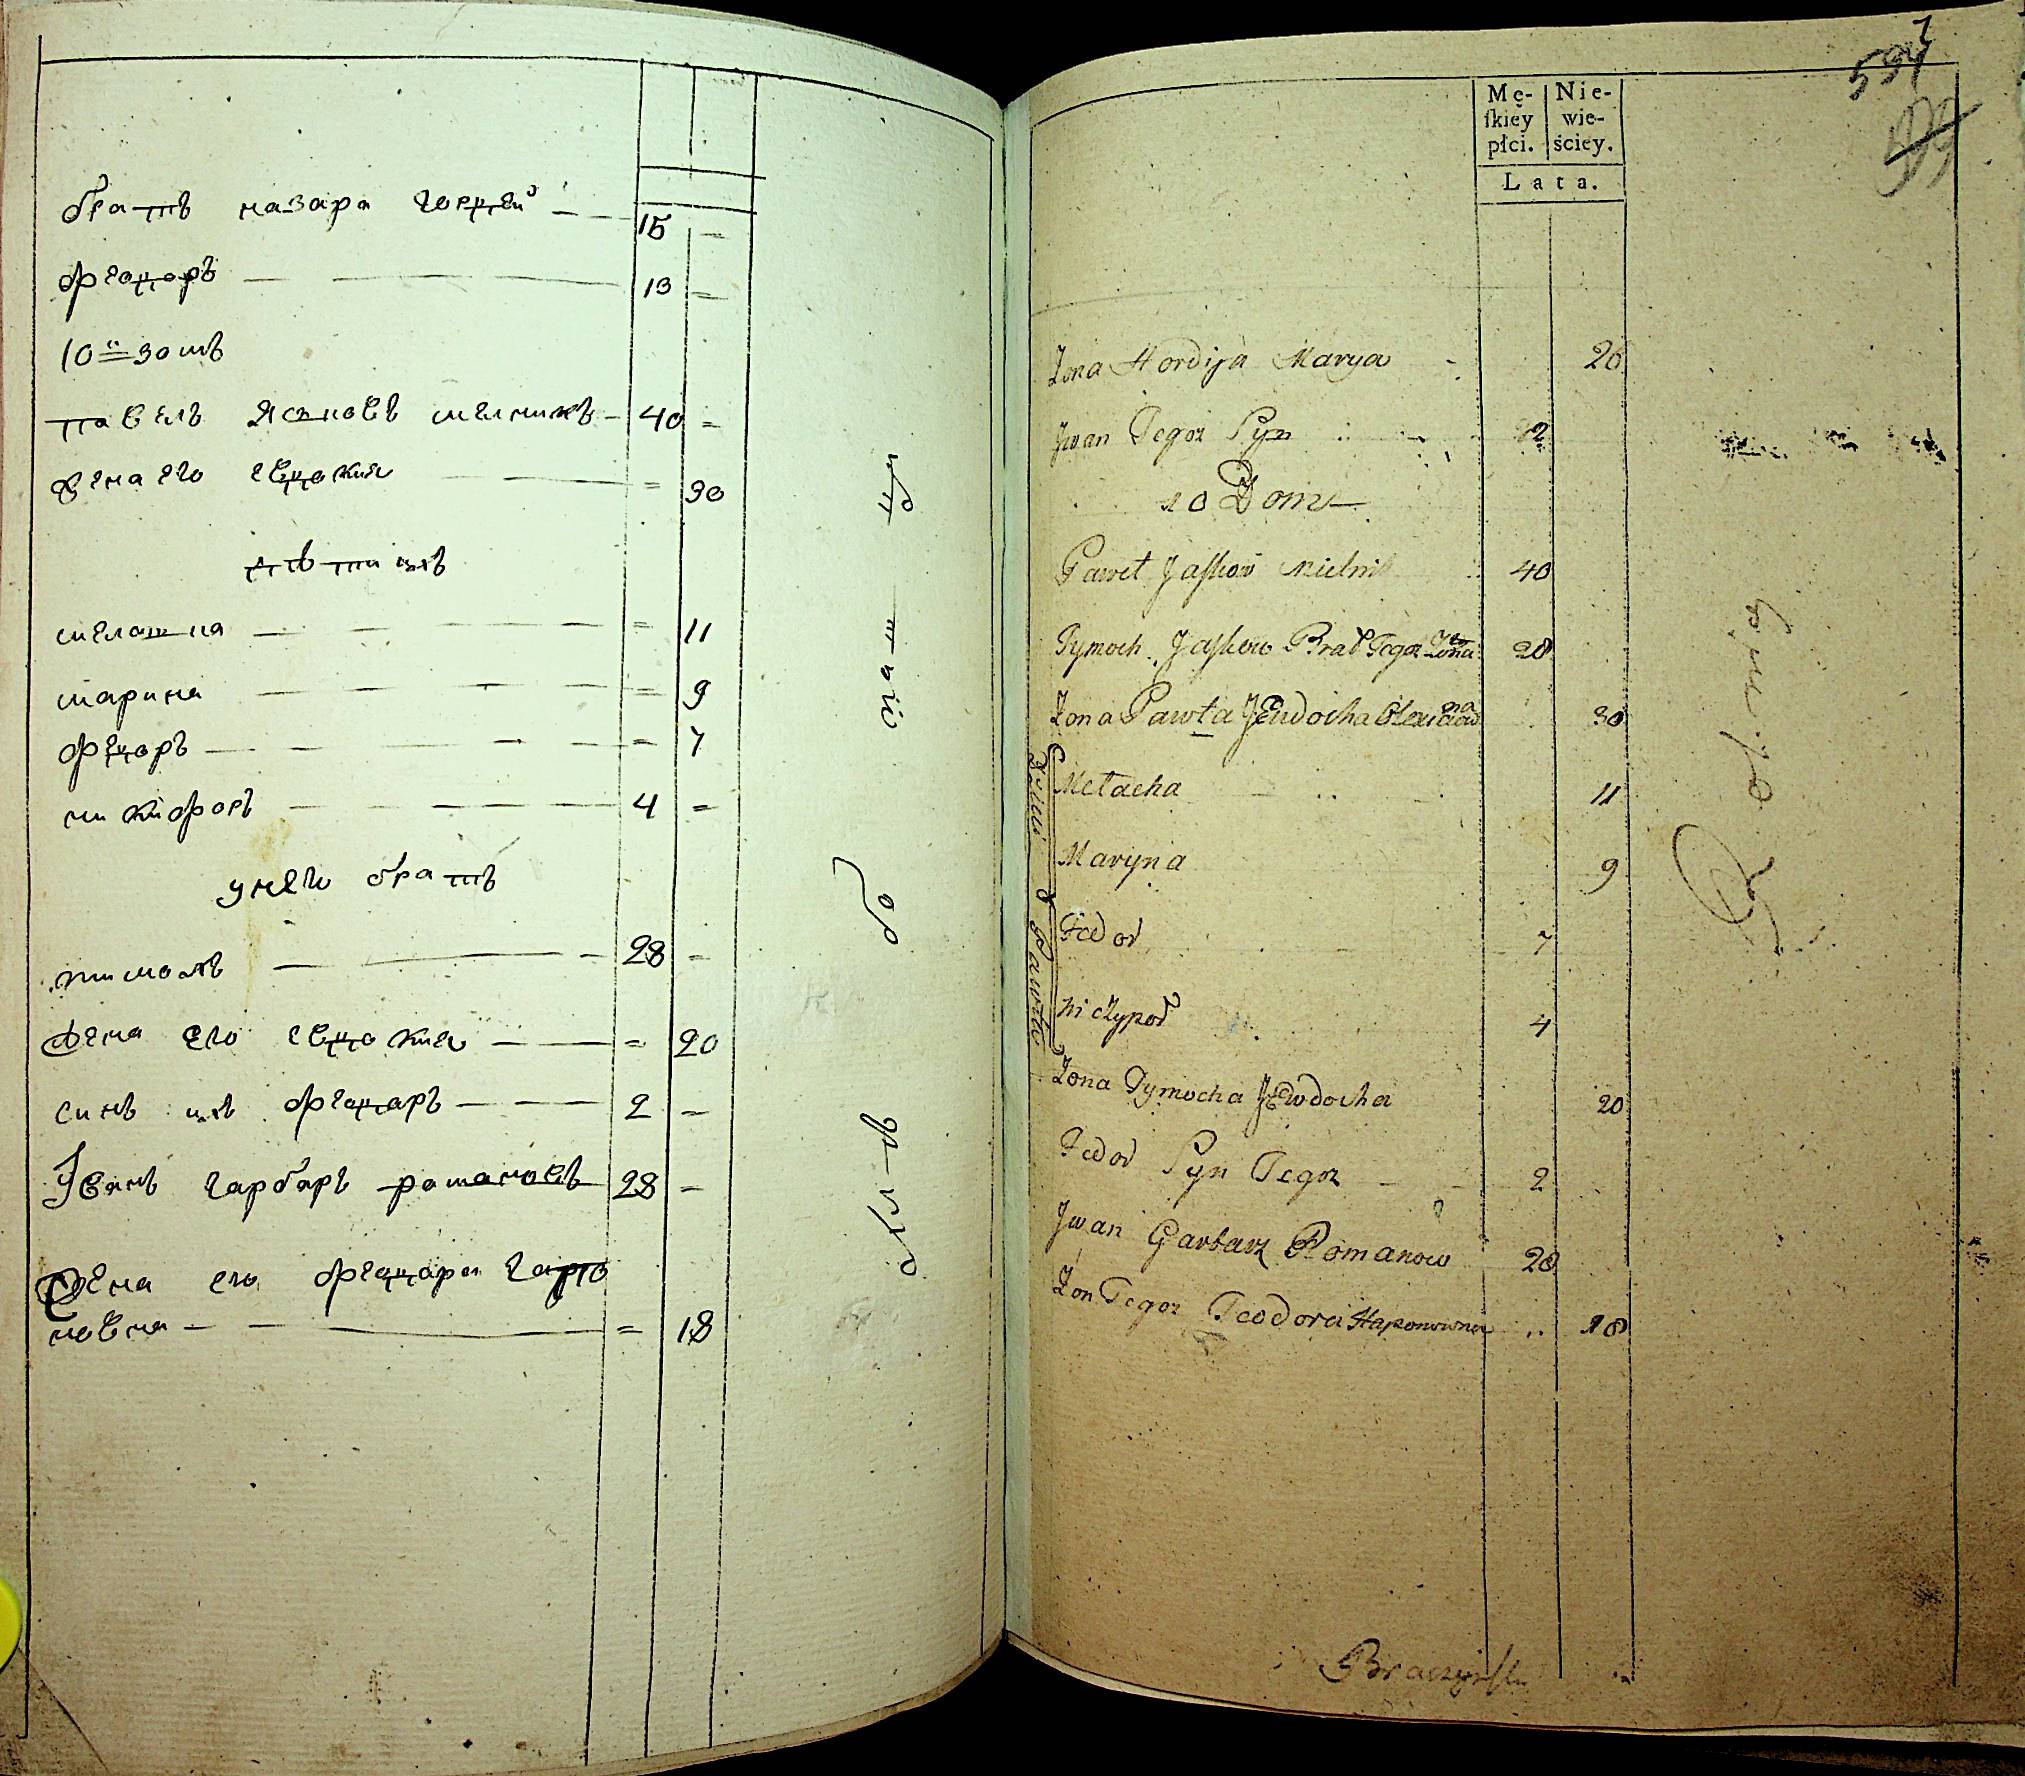 братъ назара гордей 15 =
феодоръ 13 =
10й домъ
павелъ ясковъ мелникъ 40 =
жена его евдокия = 30
дѣти ихъ
мелашка = 11
марина = 9
федоръ = 7
никифоръ 4 =
у него братъ
тимохъ 28 =
жена его евдокия = 20
синъ ихъ феодаръ 2 =
Иванъ гарбаръ романовъ 28 =
жена его феодора гапо
новна = 18
594
Mę-
skiey
płci.
Nie-
wie-
ściey.
Lata.
Żona Hordija Marya 26
Jwan Tegoz Syn
10 Dom
Paweł Jaskow Mielnik 40
Tymoch Jaskow Brat Tegoz 28
Żona Pawła JEwdocha 30
Mełacha 11
Maryna 9
Fedor 7
Niczypor 4
Pawła
Żona Tymocha JEwdocha 20
Fedor Syn Tegoz 2
Jwan Garbarz Romanow 28
Żon Tegoz Teodora Haponowna 18